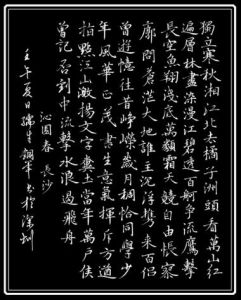 獨立寒秋湘江北去橘子洲頭看萬山紅
遍層林盡染漫江碧透百舸爭流鷹擊
長空魚翔淺底萬類霜天競自由悵寥
廓問蒼茫大地誰主沈浮攜來百侶
曾遊憶往昔崢嶸歲月稠恰同學少
年風華正茂書生意氣揮斥方遒
指點江山激揚文字糞土當年萬戶侯
曾記否到中流擊水浪遏飛舟
沁園春 長沙
壬午夏日 生鋼筆書於深圳